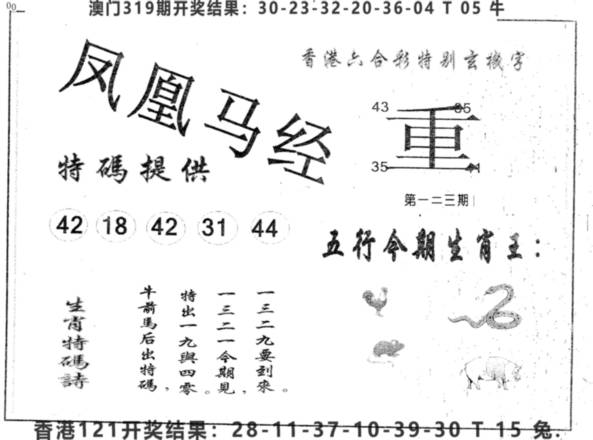 澳门319期开奖结果：30-23-32-20-36-04 T 05 牛
香港六合彩特别玄機字
凤凰马经
43
35
重
35
第一二三期
特碼提供
42 18 42 31 44
五行今期生肖王：
一三二九要到來。
一三二一今期見，
特出一九與四零。
牛前馬后出特碼，
生肖特碼詩
香港121开奖结果：28-11-37-10-39-30 T 15 兔.